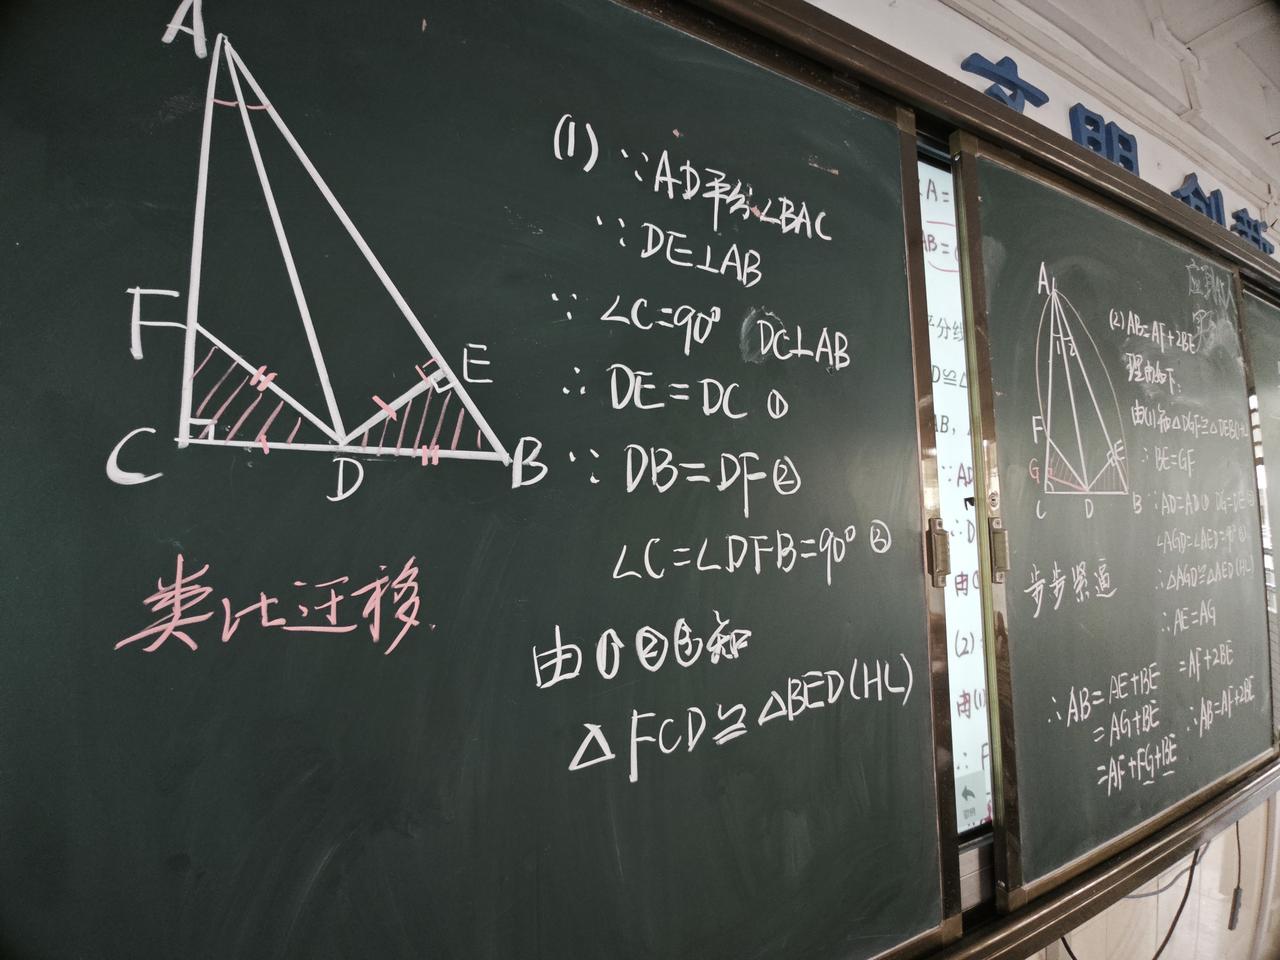 文明 创新
A
F
E
C
D
B
(1) ∵AD平分∠BAC
∵DE⊥AB
∵ ∠C=90° DC⊥AB
∴ DE=DC ①
∵ DB=DF ②
∠C=∠DFB=90° ③
由①②③知
△FCD≌△BED(HL)
类比迁移
A=
AB=
平分线
D≌△
AB,
∵AD
∴D
由(
(2)
由(1
∴ F
A
1 2
F
E
G
C
D
B
(2) AB=AF+2BE
理由如下:
由(1)知△DGF≌△DEB(HL)
∴BE=GF
∵AD=AD① DG=DE②
∠AGD=∠AED=90°③
∴△AGD≌△AED(HL)
∴AE=AG
步步紧逼
∴AB=AE+BE
=AG+BE
=AF+FG+BE
=AF+2BE
∴AB=AF+2BE